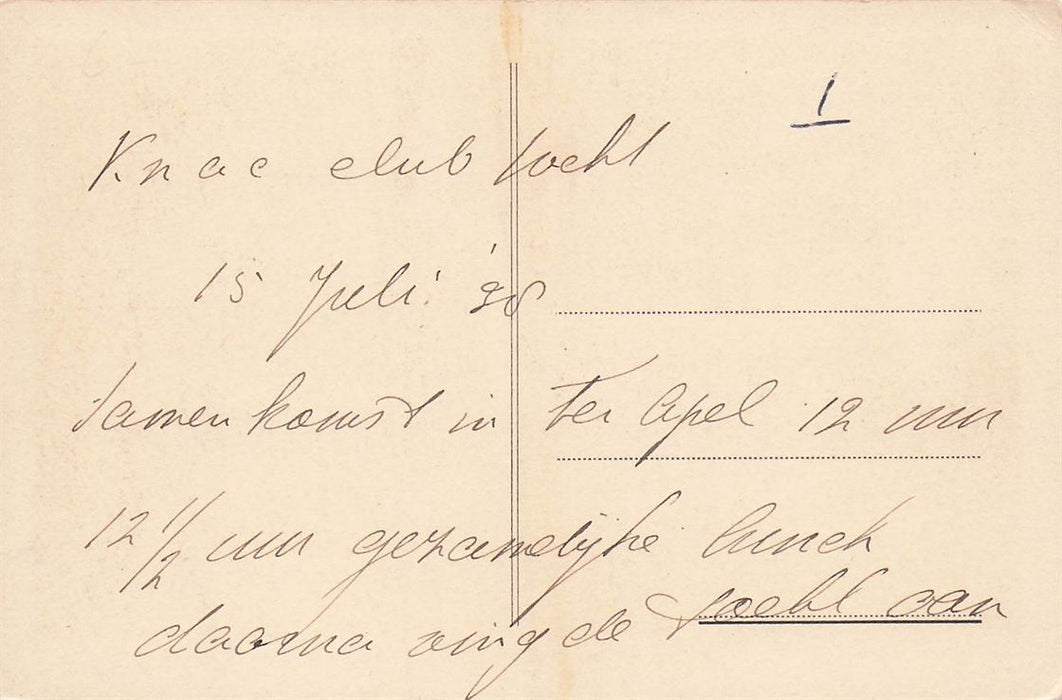 1
Knac club tocht
15 Juli '38
Samenkomst in Ter Apel 12 uur
12 1/2 uur gezamelijke lunch
daarna ving de tocht aan